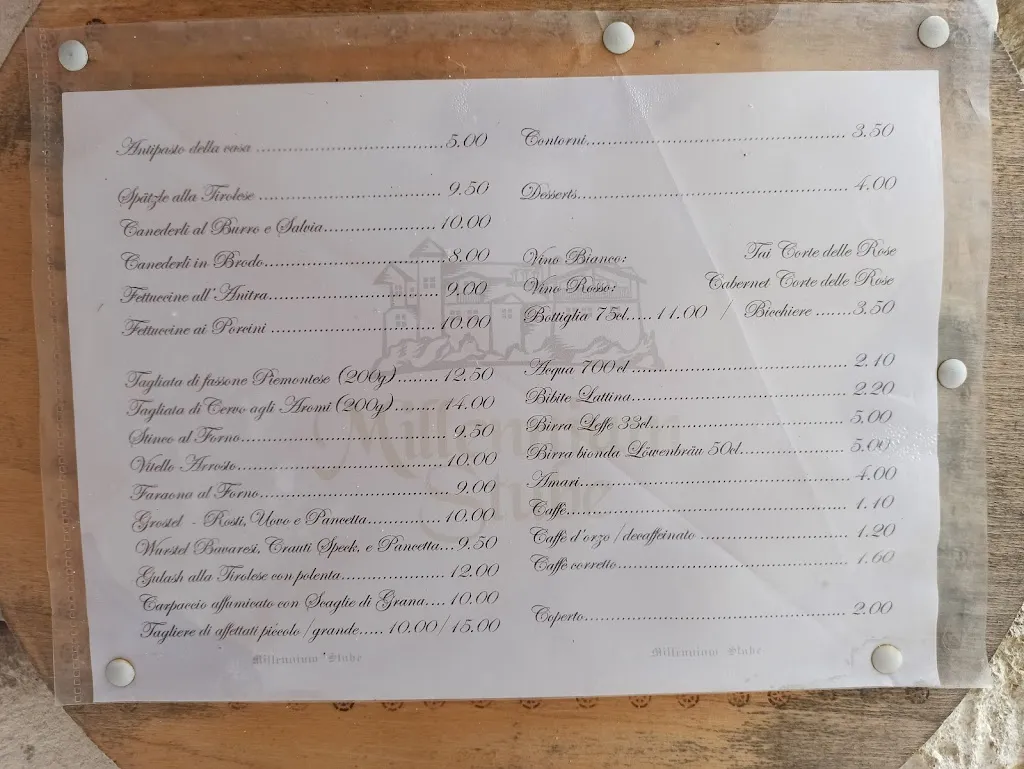 Antipasto della casa ........................ 5.00
Spätzle alla Tirolese ........................ 9.50
Canederli al Burro e Salvia........................ 10.00
Canederli in Brodo........................ 8.00
Fettuccine all'Anitra........................ 9.00
Fettuccine ai Porcini ........................ 10.00
Tagliata di fassone Piemontese (200g)......... 12.50
Tagliata di Cervo agli Aromi (200g)......... 14.00
Stinco al Forno........................ 9.50
Vitello Arrosto........................ 10.00
Faraona al Forno........................ 9.00
Grostel - Rosti, Uovo e Pancetta............... 10.00
Wurstel Bavaresi, Crauti Speck, e Pancetta... 9.50
Gulash alla Tirolese con polenta................... 12.00
Carpaccio affumicato con Scaglie di Grana.... 10.00
Tagliere di affettati piccolo /grande..... 10.00/15.00
Millennium Stube
Contorni........................ 3.50
Desserts........................ 4.00
Vino Bianco: Tai Corte delle Rose
Vino Rosso: Cabernet Corte delle Rose
Bottiglia 75cl..... 11.00 / Bicchiere ....... 3.50
Acqua 700cl ........................ 2.10
Bibite Lattina........................ 2.20
Birra Leffe 33cl........................ 5.00
Birra bionda Löwenbräu 50cl................... 5.00
Amari........................ 4.00
Caffe........................ 1.10
Caffe d'orzo /decaffeinato ........................ 1.20
Caffè corretto........................ 1.60
Coperto........................ 2.00
Millennium Stube
Millennium
Stube